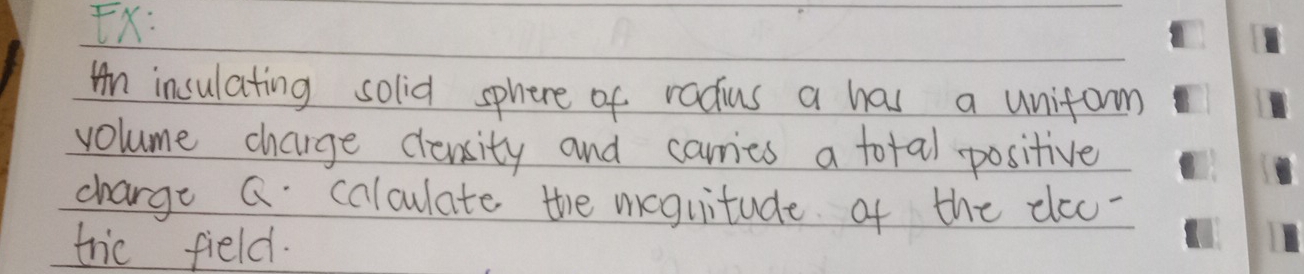 EX:
An insulating solid sphere of radius a has a uniform
volume charge density and carries a total positive
charge Q. calculate the magnitude of the elec-
tric field.